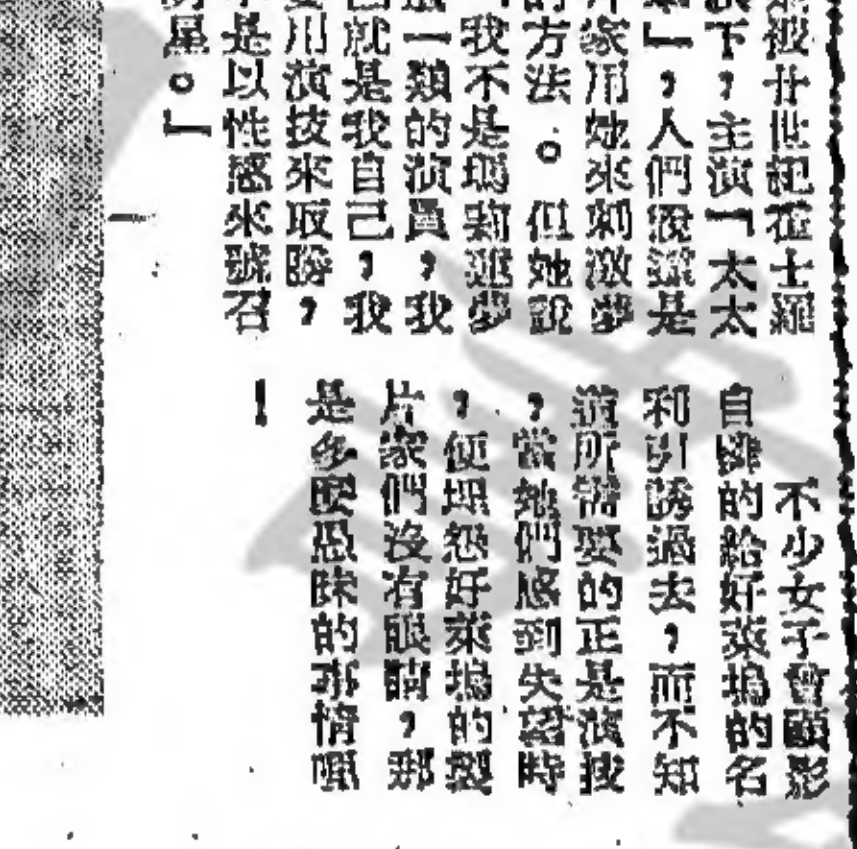 被廿世紀霍士羅
下，主演「太太
」，人們說這是
片家用她來刺激夢
的方法。但她說
我不是瑪莉蓮夢
一類的演員，我
就是我自己，我
用演技來取勝，
不是以性感來號召
明星。」
不少女子會顧影
自憐的給好萊塢的名
利引誘過去，而不知
道所需要的正是演技
，當她們感到失望時
，便埋怨好萊塢的製
片家們沒有眼睛，那
是多麼愚昧的事情呢
！